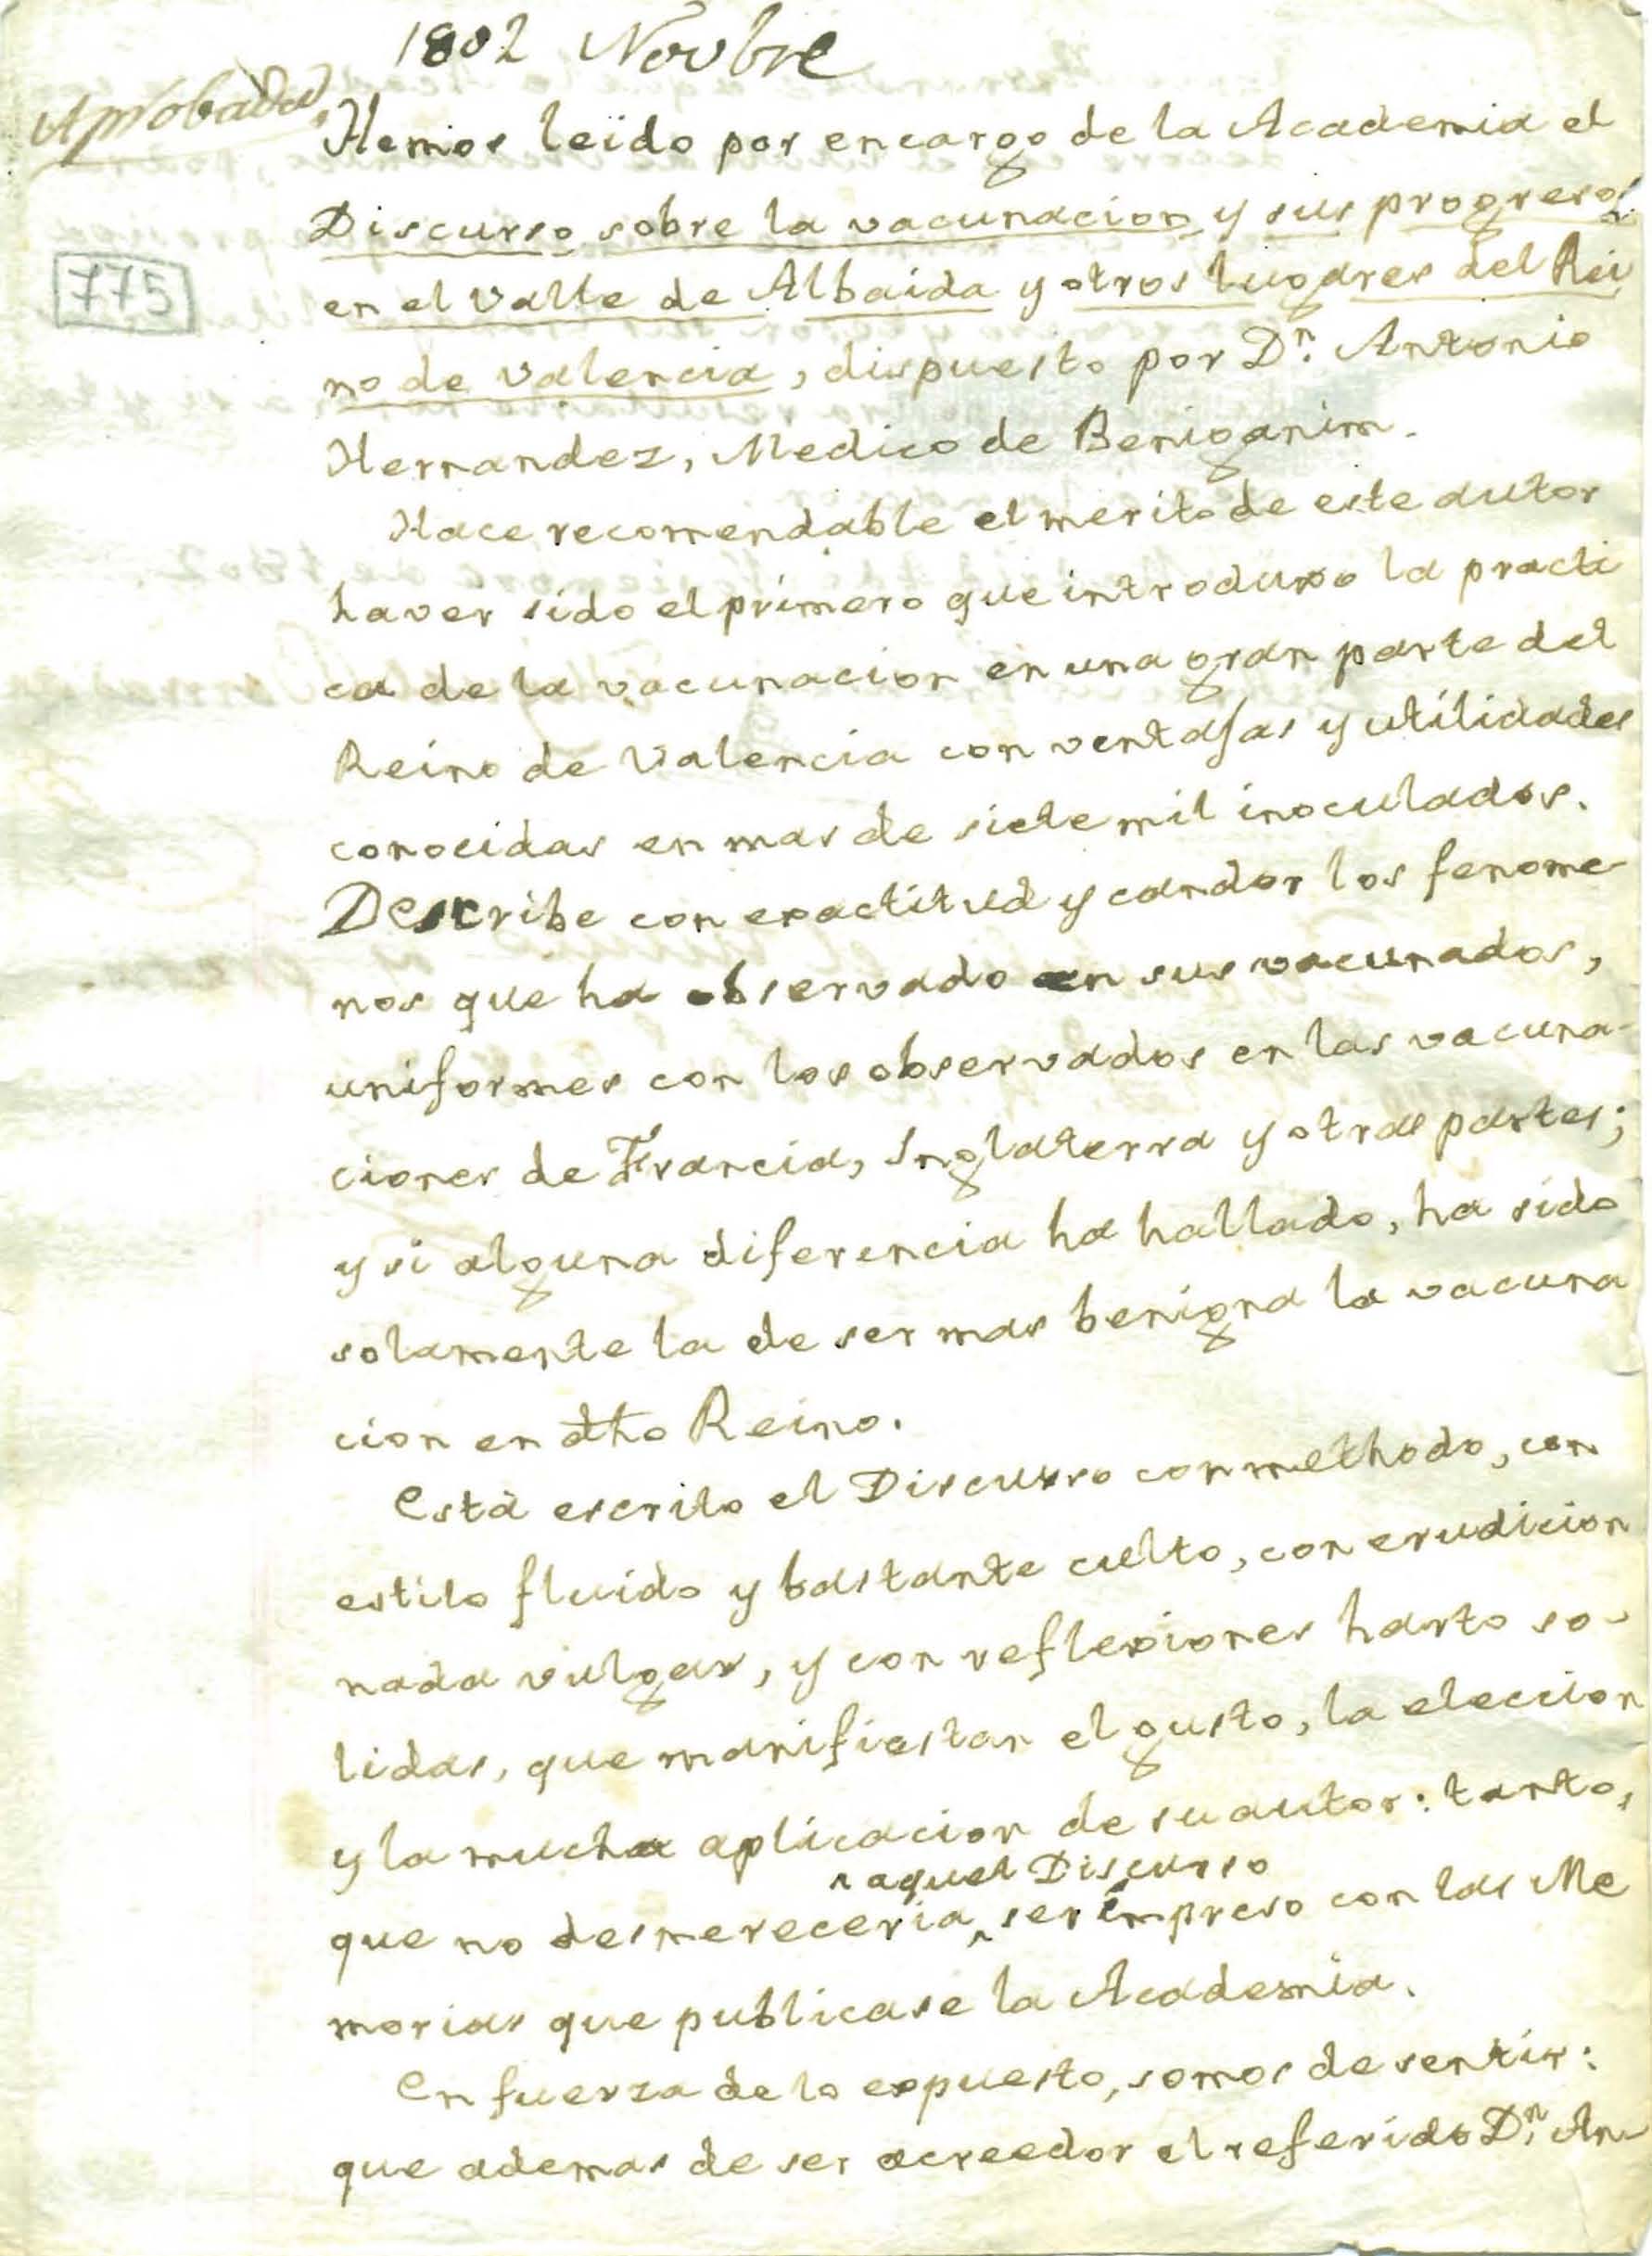 1802 Novbre
Aprobada.
775
Hemos leido por encargo de la Academia el
Discurso sobre la vacunacion y sus progresos
en el Valle de Albaida y otros lugares del Rei
no de Valencia, dispuesto por Dn. Antonio
Hernandez, Medico de Beniganim.
Hace recomendable el merito de este autor
haver sido el primero que introduxo la practi
ca de la vacunacion en una gran parte del
Reino de Valencia con ventajas y utilidades
conocidas en mas de siete mil inoculados.
Describe con exactitud y candor los fenome-
nos que ha observado en sus vacunados,
uniformes con los observados en las vacuna-
ciones de Francia, Inglaterra y otras partes;
y si alguna diferencia ha hallado, ha sido
solamente la de ser mas benigna la vacuna
cion en dho Reino.
Està escrito el Discurso con methodo, con
estilo fluido y bastante culto, con erudicion
nada vulgar, y con reflexiones harto so-
lidas, que manifiestan el gusto, la eleccion
y la mucha aplicacion de su autor: tanto,
aquel Discurso
que no desmereceria ser impreso con las Me
morias que publicase la Academia.
En fuerza de lo expuesto, somos de sentir:
que ademas de ser acreedor el referido Dn. An-